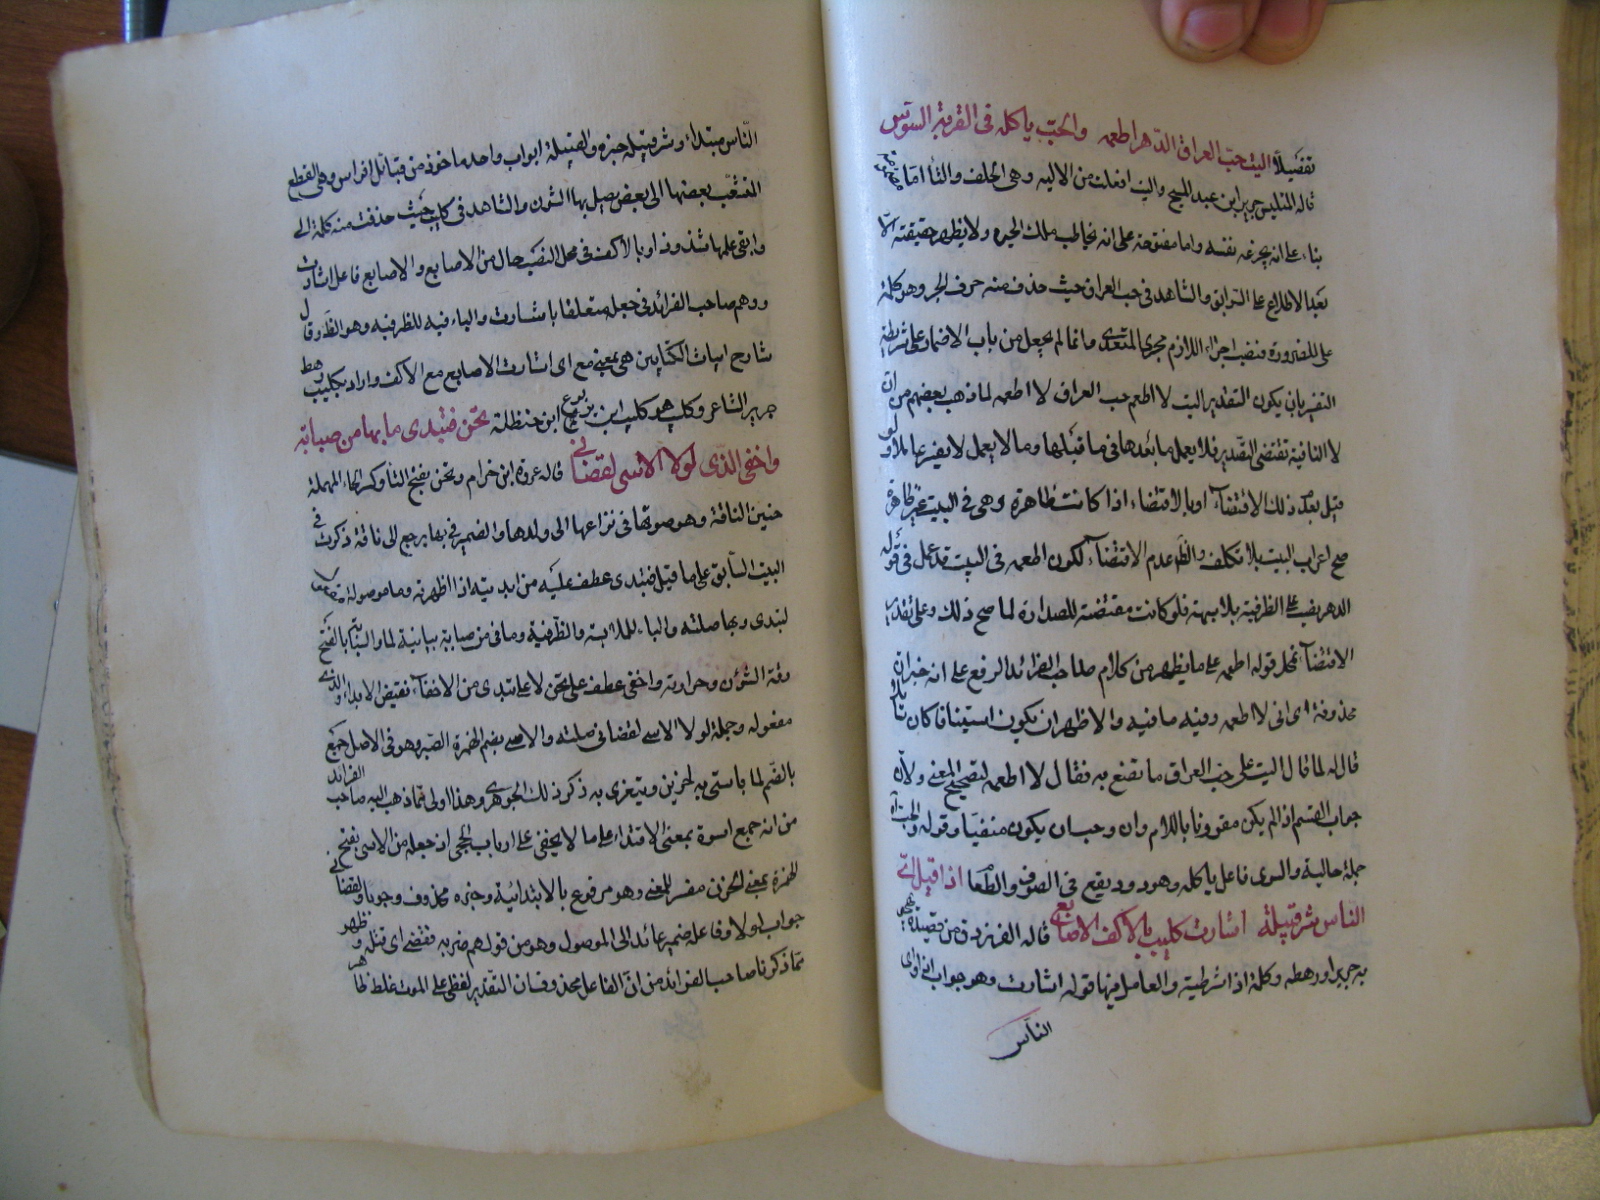 تفصيلا اليت حب العراق الدهر اطعمه والحب ياكله في القرية السوس
قاله المتلمس جرير ابن عبد المسيح واليت افعلت من الالية وهي الحلف والتاء اما مضمومة
بناء على انه يخبر عن نفسه واما مفتوحة على انه يخاطب ملك الحيرة ولا يظهر حقيقته الا
بعد الاطلاع على السوابق والشاهد في حب العراق حيث حذف منه حرف الجر وهو كلمة
على للضرورة فنصب اجراء اللازم مجرى المتعدى وانما لم يجعل من باب الاضمار على شريطة
التفسير بان يكون التقدير اليت لا اطعم حب العراق لا اطعمه لما ذهب بعضهم من ان
لا النافية تقتضى التصدير فلا يعمل ما بعدها في ما قبلها وما لا يعمل لا يفسر عاملا ولو
قيل بعدم ذلك الاقتضاء او بالاقتضاء اذا كانت ظاهرة وهي في البيت غير ظاهرة
صح اعراب البيت بلا تكلف والظ عدم الاقتضاء لكون اطعمه في البيت قد عمل في قوله
الدهر نصب على الظرفية بلا شبهة فلو كانت مقتضية للصدارة لما صح ذلك وعلى تقدير
الاقتضاء محل قوله اطعمه على ما يظهر من كلام صاحب الفرائد الرفع على انه خبر ان
محذوفة اى انى لا اطعمه وفيه ما فيه والاظهر ان يكون استينافا كان قائلا
قال له لما قال اليت على حب العراق ما تصنع به فقال لا اطعمه لتصحيح المعنى ولان
جواب القسم اذا لم يكن مقرونا باللام وان وجب ان يكون منفيا وقوله والحب اه
جملة حالية والسوس فاعل ياكله وهو دود يقع في الصوف والطعام اذا قيل اي
الناس شر قبيلة اشارت كليب بالاكف الاصابع قاله الفرزدق من قصيدة يهجو
به جرير او رهطه وكلمة اذا شرطية والعامل فيها قوله اشارت وهو جواب اذا واى
الناس
الناس مبتداء وشر قبيلة خبره والقبيلة ابواب واحد ماخوذ من قبائل الراس وهى القطع
المشعب بعضها الى بعض يصل بها الشؤن والشاهد في كليب حيث حذفت منه كلمة الى
وابقى عملها شذوذا وبالاكف في محل النصب حال من الاصابع والاصابع فاعل اشارت
ووهم صاحب الفرائد في جعله متعلقا باشارت والباء فيه للظرفية وهو الظ وقال
شارح ابيات الكتابين هى بمعنى مع اى اشارت الاصابع مع الاكف واراد بكليب رهط
جرير الشاعر وكليب هو كليب ابن يربوع ابن حنظلة تحن فتبدى ما بها من صبابة
واخفى الذى لولا الاسى لقضانى قاله عروة ابن خرام وتحن بفتح التا وكسر الحاء المهملة
حنين الناقة وهو صوتها في نزاعها الى ولدها والضمير في بها يرجع الى ناقة ذكرت في
البيت السابق على ما قيل فتبدى عطف عليه من ابديته اذا اظهرته وما موصولة مفعول
لتبدى وبها صلته والباء للملابسة والظرفية ومن في من صبابة بيانية لما والصبابة بالفتح
رقة الشوق وحرارته واخفى عطف على تحن لا على تبدى من الاخفاء نقيض الابداء والذى
مفعوله وجملة لولا الاسى لقضانى صلته والاسى بضم الهمزة الصبر وهو في الاصل جمع
بالضم لما ياتسى به الحزين ويتعزى به ذكر ذلك الجوهرى وهذا اولى مما ذهب اليه صاحب الفرائد
من انه جمع اسوة بمعنى الاقتداء على ما لا يخفى على ارباب الحجى اذ جعله من الاسى بفتح
الهمزة بمعنى الحزن مفسر للمعنى وهو مرفوع بالابتدائية وخبره محذوف وجوبا ولقضانى
جواب لولا وفاعله ضمير عائد الى الموصول وهو من قولهم ضربه فقضى اى قتله وظهر
مما ذكرنا صاحب الفرائد من ان الفاعل محذوف ان التقدير لقضى على الموت غلط ظاهر